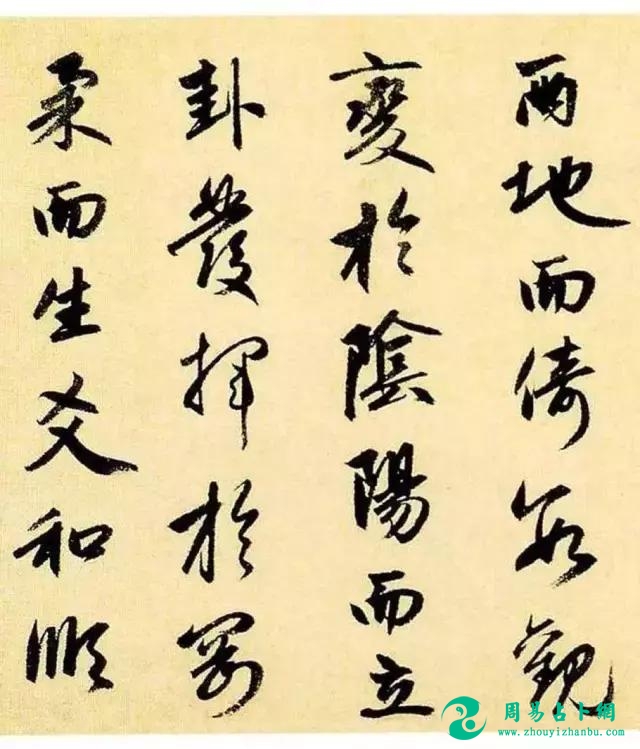 兩地而倚數觀
變於陰陽而立
卦發揮於剛
柔而生爻和順
周易占卜網
www.zhouyizhanbu.com